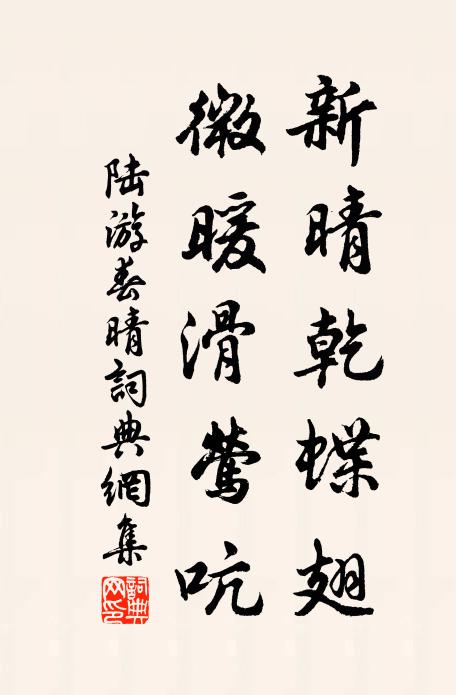 新晴乾蝶翅
微暖滑鶯吭
陆游春晴詞典網集
詞典網印